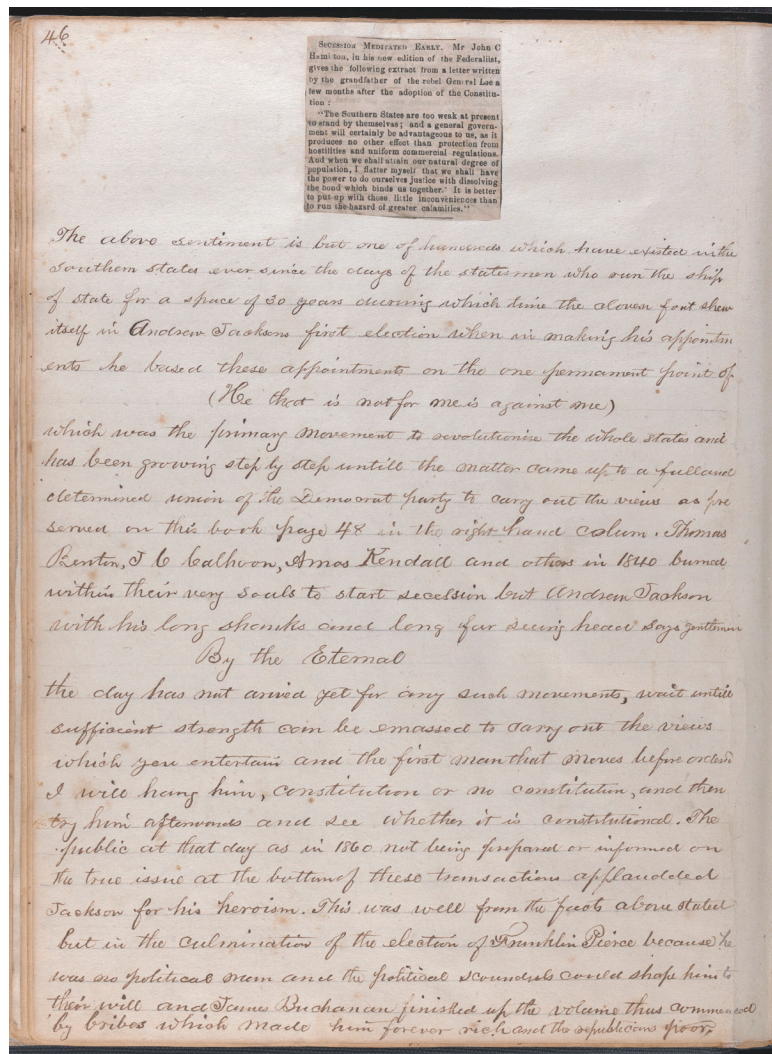 46
SECESSION MEDITATED EARLY. Mr John C
Hamilton, in his new edition of the Federaliist,
gives the following extract from a letter written
by the grandfather of the rebel General Lee a
few months after the adoption of the Constitu-
tion :
"The Southern States are too weak at present
to stand by themselves; and a general govern-
ment will certainly be advantageous to us, as it
produces no other effect than protection from
hostilities and uniform commercial regulations.
And when we shall attain our natural degree of
population, I flatter myself that we shall have
the power to do ourselves justice with dissolving
the bond which binds us together.' It is better
to put up with these little inconveniences than
to run the hazard of greater calamities."
The above sentiment is but one of hunderds which have existed in the
Southern States ever since the days of the statesmen who run the ship
of state for a space of 30 years durring which time the cloven foot shew
itself in Andrew Jacksons first election when in making his appointm
ents he based these appointments on the one permament point of
(He that is not for me is against me)
which was the primary movement to revolutionise the whole states and
has been growing step by step untill the matter came up to a full and
determined union of the Democrat party to carry out the views as pre
served on this book page 48 in the right hand colum. Thomas
Benton, J C Calhoon, Amos Kendall and others in 1840 burned
within their very souls to start secession but Andrew Jackson
with his long shanks and long far seeing head says gentlemen
By the Eternal
the day has not arived yet for any such movements, wait untill
sufficient strength can be emassed to carry out the views
which you entertain and the first man that moves before orders
I will hang him, constitution or no constitution, and then
try him afterwards and see whether it is constitutional. The
public at that day as in 1860 not being prepared or informed on
the true issue at the bottum of these transactions applaudded
Jackson for his heroism. This was well from the facts above stated
but in the culmination of the election of Franklin Pierce because he
was no political man and the political scoundrels could shape him to
their will and James Buchanan finished up the volume thus commenced
by bribes which made him forever rich and the republicans poor.